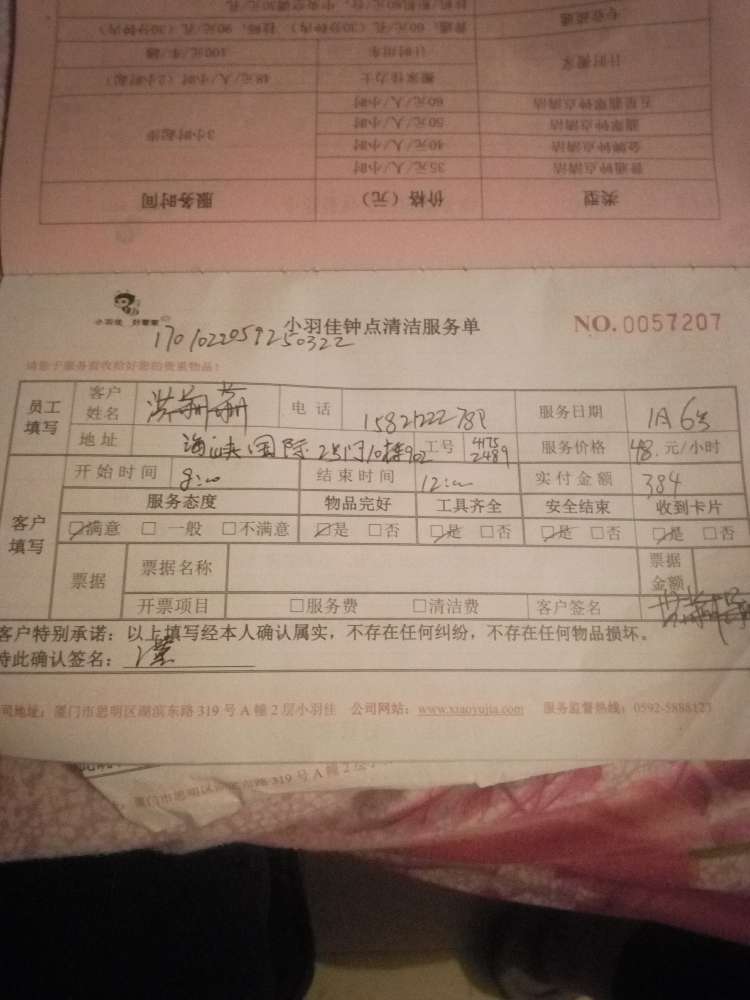 专业疏通
普通：60元/孔（30分钟内）
90元/孔（30分钟内）
计时搬家
计时用车
100元/车/趟
搬家大力士
48元/人/小时（2小时起）
五星翡翠钟点清洁
60元/人/小时
翡翠钟点清洁
50元/人/小时
3小时起步
金牌钟点清洁
40元/人/小时
普通钟点清洁
35元/人/小时
类型
价格（元）
服务时间
小羽佳 好管家
小羽佳钟点清洁服务单
NO.0057207
1701022059250322
请您于服务前收拾好您的贵重物品！
员工填写
客户姓名
电话
服务日期
1月6号
地址
海峡国际
工号
4175
2489
服务价格
48.元/小时
客户填写
开始时间
8:00
结束时间
12:00
实付金额
384
服务态度 物品完好 工具齐全 安全结束 收到卡片
☑满意 □一般 □不满意 ☑是 □否 ☑是 □否 ☑是 □否 ☑是 □否
票据
票据名称
票据金额
开票项目 □服务费 □清洁费 客户签名
客户特别承诺：以上填写经本人确认属实，不存在任何纠纷，不存在任何物品损坏。
特此确认签名：
司地址：厦门市思明区湖滨东路319号A幢2层小羽佳 公司网站：www.xiaoyujia.com 服务监督热线：0592-5888123
厦门市思明区湖滨东路319号A幢2层